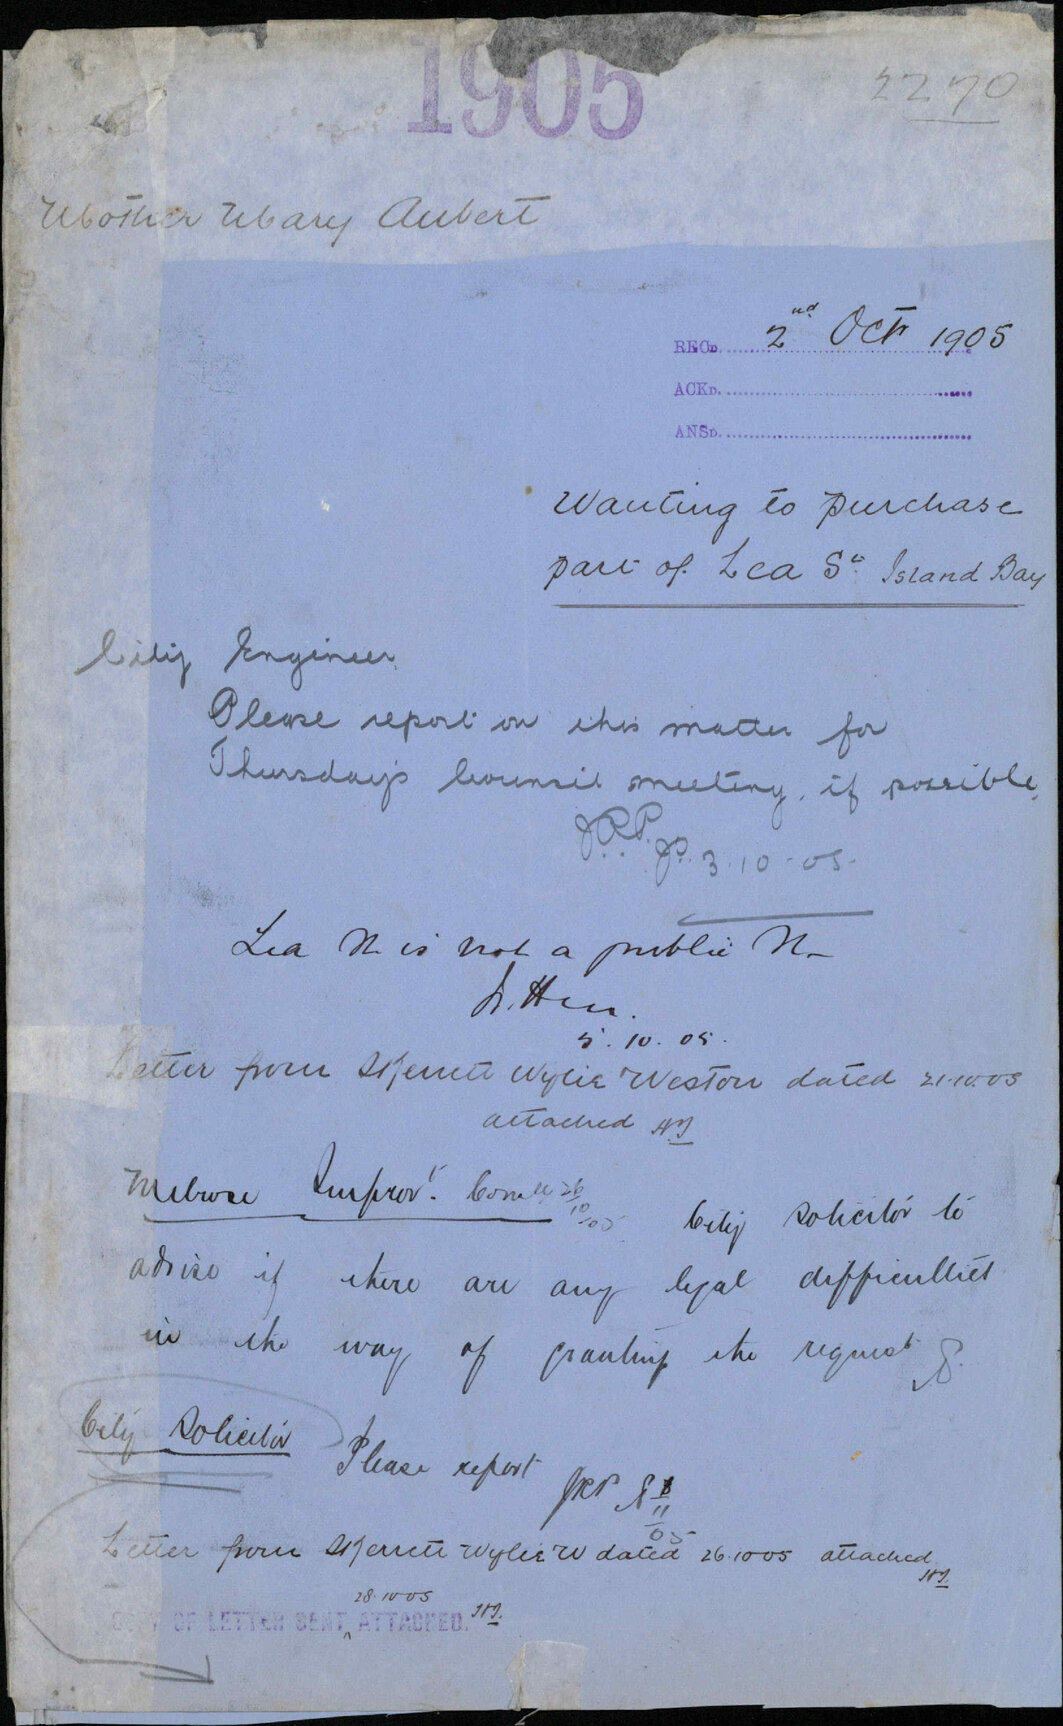 1905
2270
Mother Mary Aubert
RECD. 2nd Oct 1905
ACKD.
ANSD.
Wanting to purchase
part of Lea St Island Bay
City Engineer
Please report on this matter for
Thursday's Council meeting, if possible.
JRP. 3.10.05.
Lea St is not a public St
5.10.05.
Letter from Skerrett Wylie Weston dated 21.10.05
attached
Melrose Improvt. Comee 26/10/05 City Solicitor to
advise if there are any legal difficulties
in the way of granting the request
City Solicitor Please report JRP
11/05
Letter from Skerrett Wylie W dated 26.10.05 attached
28.10.05
COPY OF LETTER SENT ATTACHED.